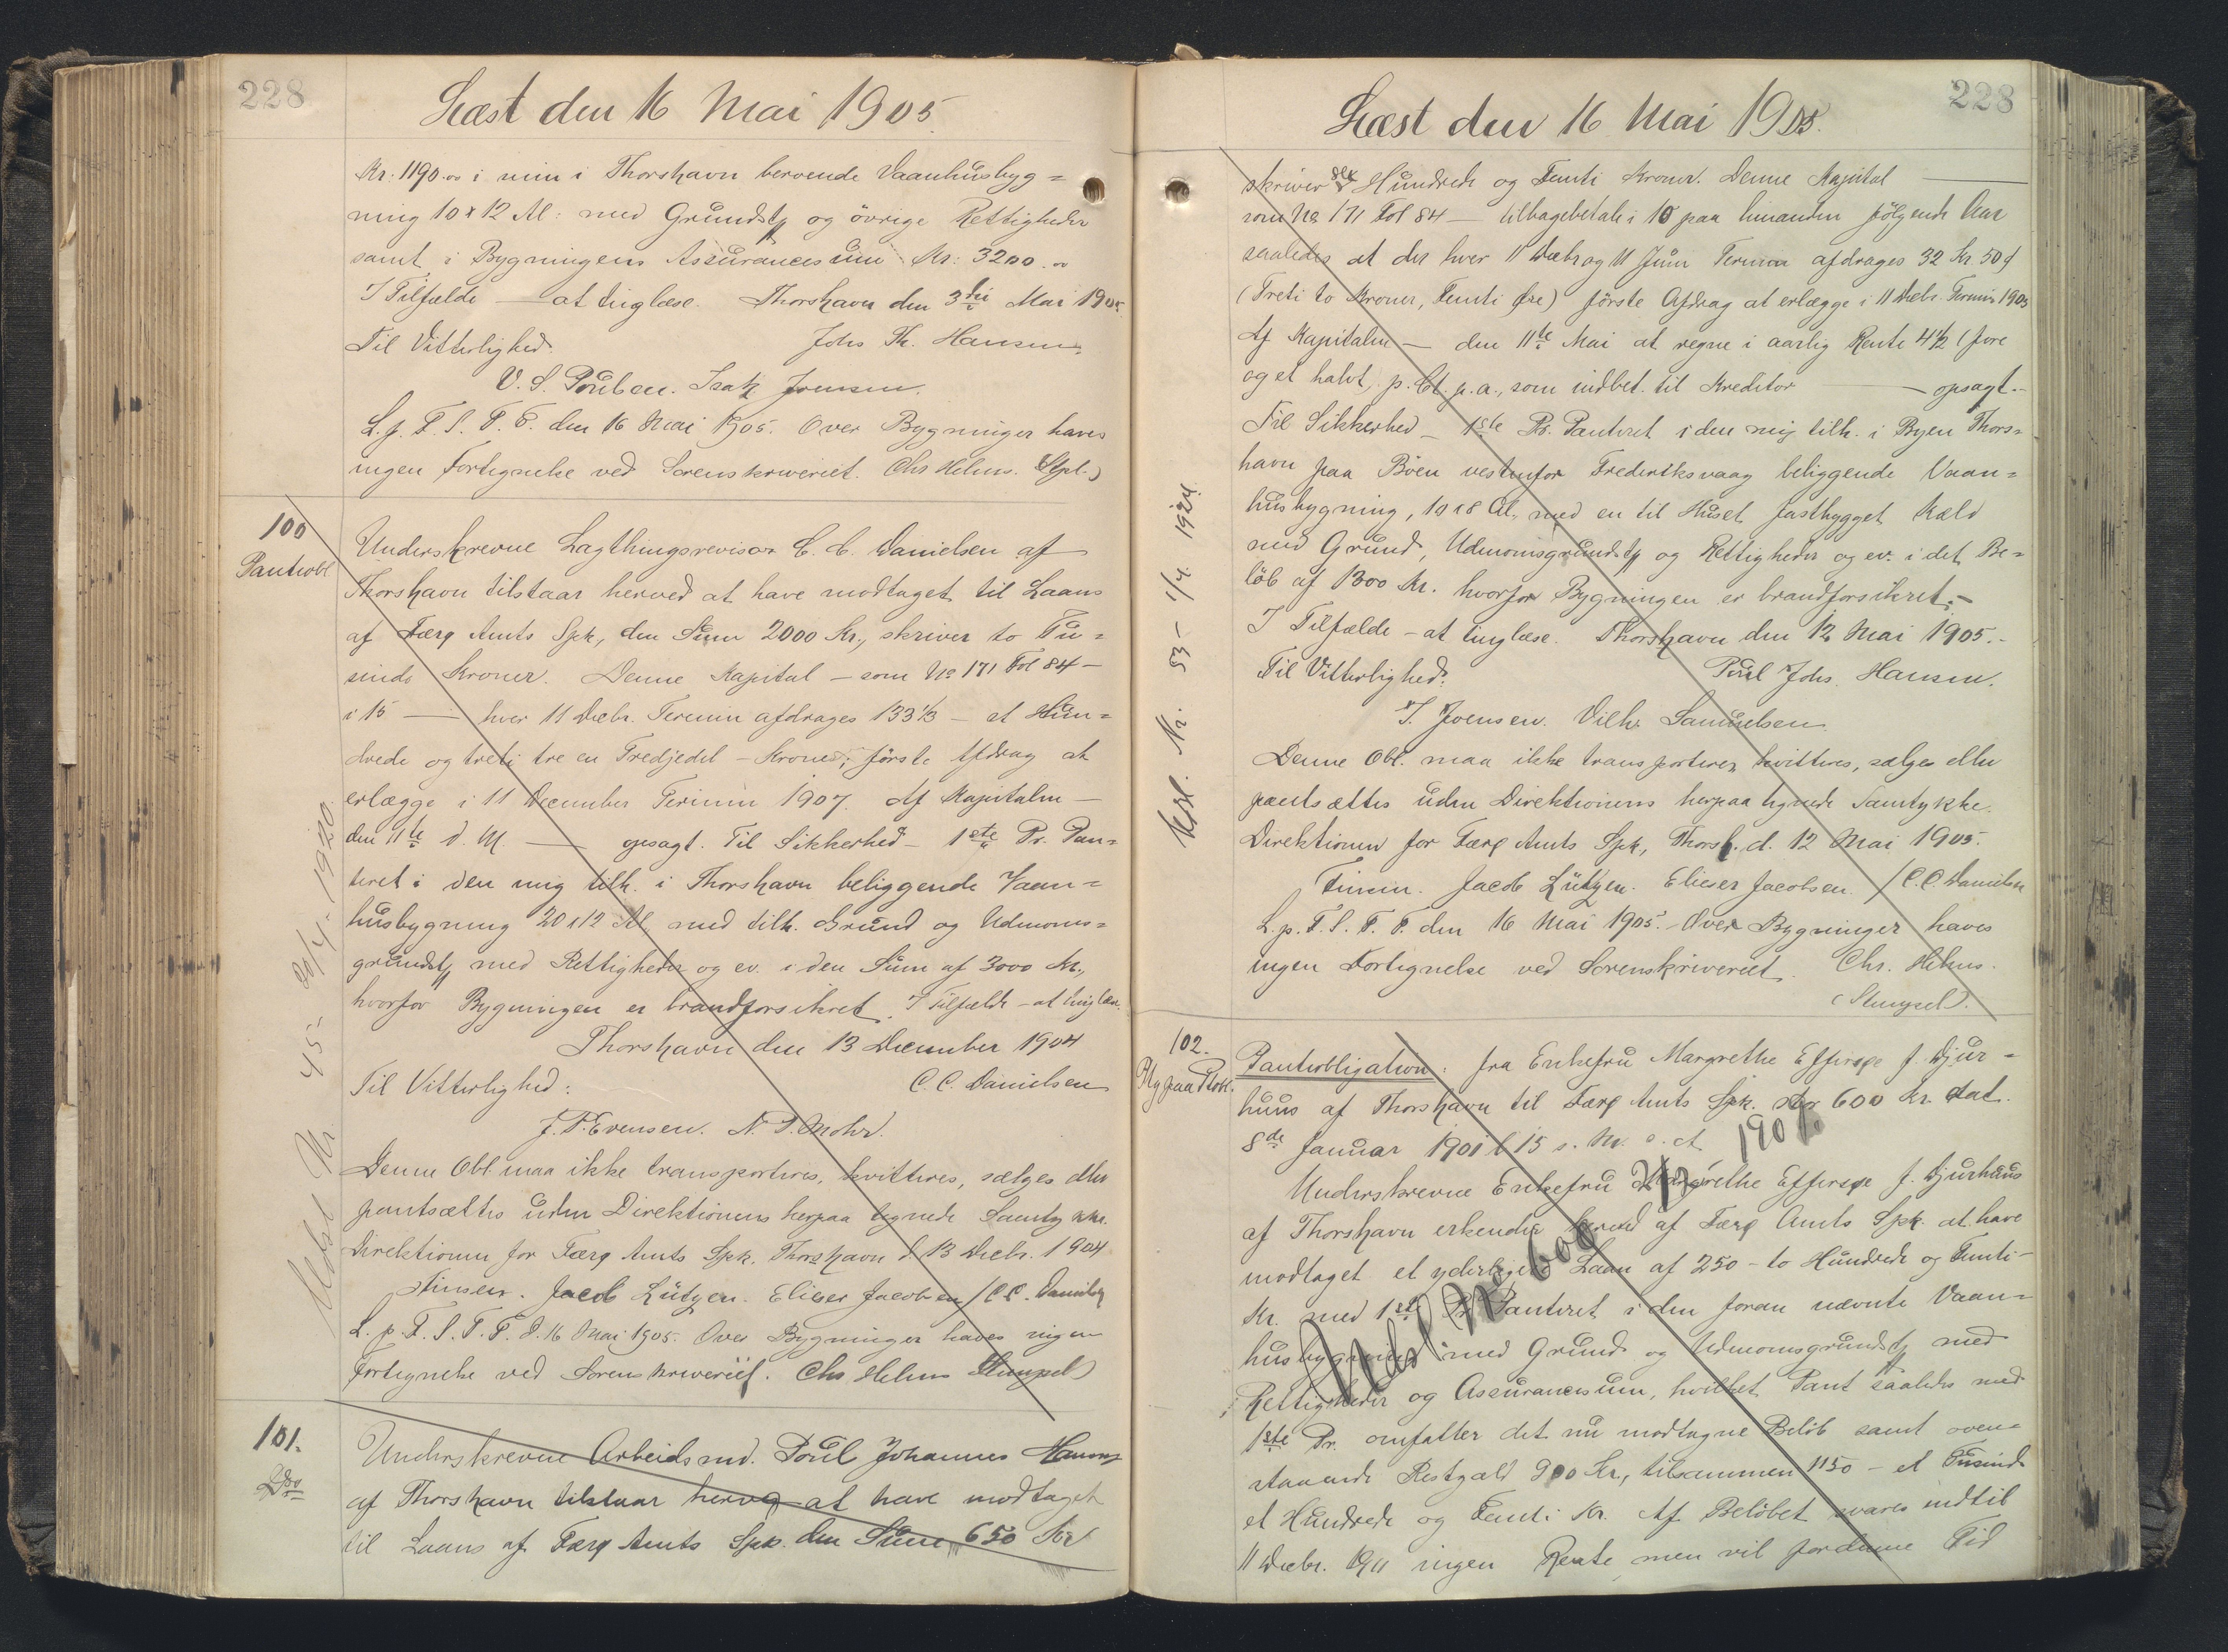 228
Læst den 16 Mai 1905.
Kr. 1190.00 i min i Thorshavn beroende Vaanhusbyg=
ning 10 x 12 Al. med Grundst. og øvrige Rettigheder
samt i Bygningens Assurancesum Kr: 3200.00
I Tilfælde — at tinglæse. Thorshavn den 3die Mai 1905.
Til Vitterlighed. Johs Th. Hansen.
V. S. Poulsen. Isak Joensen.
L. p. F. S. T. F. den 16 Mai 1905. Over Bygninger haves
ingen Fortegnelse ved Sorenskriveriet. Chr Helms. (Stpl.)
100
Panteobl.
Underskrevne Lagthingsrevisor C. C. Danielsen af
Thorshavn tilstaar herved at have modtaget til Laans
af Færø Amts Spk, den Sum 2000 Kr., skriver to Tu=
sinde Kroner. Denne Kapital — som No 171 Fol 84 —
i 15 — hver 11 Decbr. Termin afdrages 133 1/3 — et Hun=
drede og treti tre en Tredjedel — Kroner; første Afdrag at
erlægge i 11 December Termin 1907. Af Kapitalen —
den 11te d. M. — opsagt. Til Sikkerhed — 1ste Pr. Pan=
teret i den mig tilh. i Thorshavn beliggende Vaan=
husbygning 20 x 12 Al., med tilh. Grund og Udmoms=
grundst. med Rettigheder og ev. i den Sum af 3000 Kr.,
hvorfor Bygningen er brandforsikret. I Tilfælde — at tinglæse.
Thorshavn den 13 December 1904
Til Vitterlighed: C. C. Danielsen
J. P. Evensen. N. P. Mohr.
Denne Obl. maa ikke transporteres, kvitteres, sælges eller
pantsættes uden Direktionens herpaa tegnede Samtykke.
Direktionen for Færø Amts Spk. Thorshavn d. 13 Decbr. 1904
Finsen. Jacob Lützen. Elieser Jacobsen / C. C. Danielsen
L. p. F. S. T. F. d. 16 Mai 1905. Over Bygninger haves ingen
Fortegnelse ved Sorenskriveriet. Chr Helms (Stempel)
Udsl Nr. 45 - 20/4 - 1920.
101.
Do
Underskrevne Arbeidsmd. Poul Johannes Hansen
af Thorshavn tilstaar herved at have modtaget
til Laans af Færø Amts Spk. den Sum 650 Kr
228
Læst den 16 Mai 1905.
skriver sex Hundrede og Femti Kroner. Denne Kapital —
som No 171 Fol 84 — tilbagebetale i 10 paa hinanden følgende Aar
saaledes at der hver 11 Decbr og 11 Juni Termin afdrages 32 Kr. 50 ø
(Treti to Kroner, Femti Øre) første Afdrag at erlægge i 11 Decbr. Termin 1905
Af Kapitalen — den 11te Mai at regne i aarlig Rente 4 1/2 (fire
og et halvt) p. Ct. p. a., som indbet. til Kreditor — opsagt.-
Til Sikkerhed — 1ste Pr. Panteret i den mig tilh. i Byen Thors=
havn paa Bøen vestenfor Frederiksvaag beliggende Vaan=
husbygning, 10 x 8 Al., med en til Huset fastbygget Kæld
med Grund, Udmomsgrundst. og Rettigheder og ev. i det Be=
løb af 1300 Kr. hvorfor Bygningen er brandforsikret.-
I Tilfælde — at tinglæse. Thorshavn den 12 Mai 1905.-
Til Vitterlighed: Poul Johs. Hansen.
J. Joensen. Vilh. Samuelsen
Denne Obl. maa ikke transporteres, kvitteres, sælges eller
pantsættes uden Direktionens herpaa tegnede Samtykke.
Direktionen for Færø Amts Spk, Thorsh. d. 12 Mai 1905.
Finsen. Jacob Lützen. Elieser Jacobsen. / C. C. Danielsen
L. p. F. S. T. F. den 16 Mai 1905. Over Bygninger haves
ingen Fortegnelse ved Sorenskriveriet. Chr. Helms.
(Stempel).
Nr. 53 - 1/4 1924.
102.
Panteobligation: fra Enkefru Margrethe Effersøe f. Djur=
huus af Thorshavn til Færø Amts Spk. stor 600 Kr. dat.
8de Januar 1901 l. 15 s. M. o. A.
Underskrevne Enkefru Margrethe Effersøe f. Djurhuus
af Thorshavn erkender herved af Færø Amts Spk. at have
modtaget et yderligere Laan af 250 — to Hundrede og Femti —
Kr. med 1ste Pr. Panteret i den foran nævnte Vaan=
husbygning med Grund og Udmomsgrundst. med
Rettigheder og Assurancesum, hvilket Pant saaledes med
1ste Pr. omfatter det nu modtagne Beløb samt oven=
staaende Restgæld 900 Kr., tilsammen 1150 — et Tusind
et Hundrede og Femti Kr. Af Beløbet svares indtil
11 Decbr. 1911 ingen Rente, men vil fordenne Tid